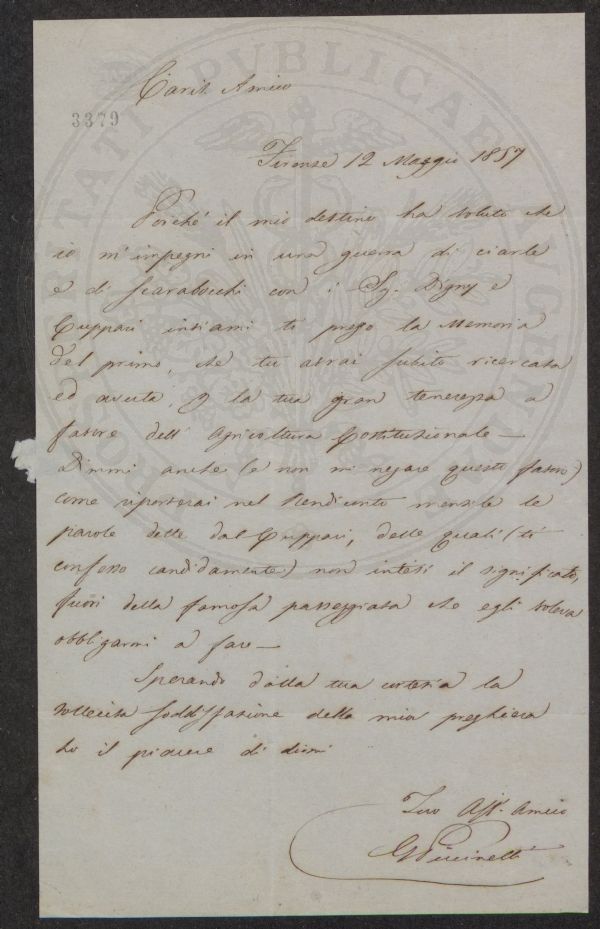 Caris. Amico
3379
Firenze 12 Maggio 1857
Perché il mio destino ha voluto che
io m'impegni in una guerra di ciarle
e di scarabocchi con i Sg. Digny e
Cuppari inviami ti prego la Memoria
del primo, che tu avrai subito ricercata
ed avuta, p la tua gran tenerezza a
favore dell' Agricoltura Costituzionale —
Dimmi anche (e non mi negare questo favore)
come riporterai nel Rendiconto mensile le
parole dette dal Cuppari, delle quali (ti
confesso candidamente) non intesi il significato,
fuori della famosa passeggiata che egli voleva
obbligarmi a fare —
Sperando dalla tua cortesia la
sollecita soddisfazione della mia preghiera
ho il piacere di dirmi
Tuo Aff. Amico